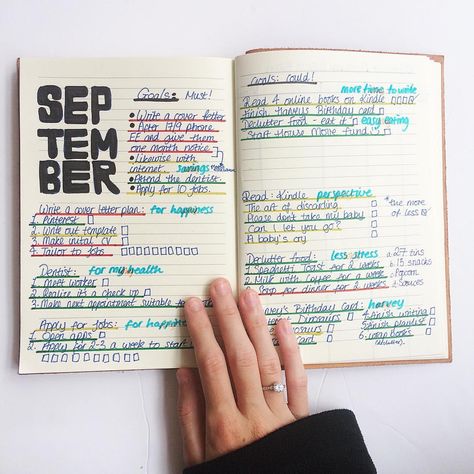 SEP
TEM
BER
Goals: Must!
• Write a cover letter
• After 7/9 phone
EE and give them
one month notice
• Likewise with
internet. savings
• Attend the dentist.
• Apply for 10 jobs.
Write a cover letter plan: for happiness
1. Pinterest
2. Write out template
3. Make initial CV
4. Tailor to jobs
Dentist: for my health
1. Meet worker
2. Realize it's a check up
3. Make next appointment suitable
Apply for jobs: for happine
1. Open apps
2. Apply for 2-3 a week to start
Goals: Could!
more time to write
Read 4 online books on Kindle
Finish Harvey's Birthday card
Declutter food - eat it easy eating
Start House Move fund.
Read: Kindle perspective
The art of discarding
Please don't take my baby
Can I let you go?
A baby's cry
*the more
of less
Declutter food: less stress
1. Spaghetti Toast for 2 weeks
2. Milk with Coffee for a week
3. Soup for dinner for 2 weeks
a. 27 tins
b. 15 snacks
Popcorn
Sauces
vey's Birthday Card: harvey
Dinosaurs
osaurs
Card
4. Finish writing
5. Finish playlist
6. Books